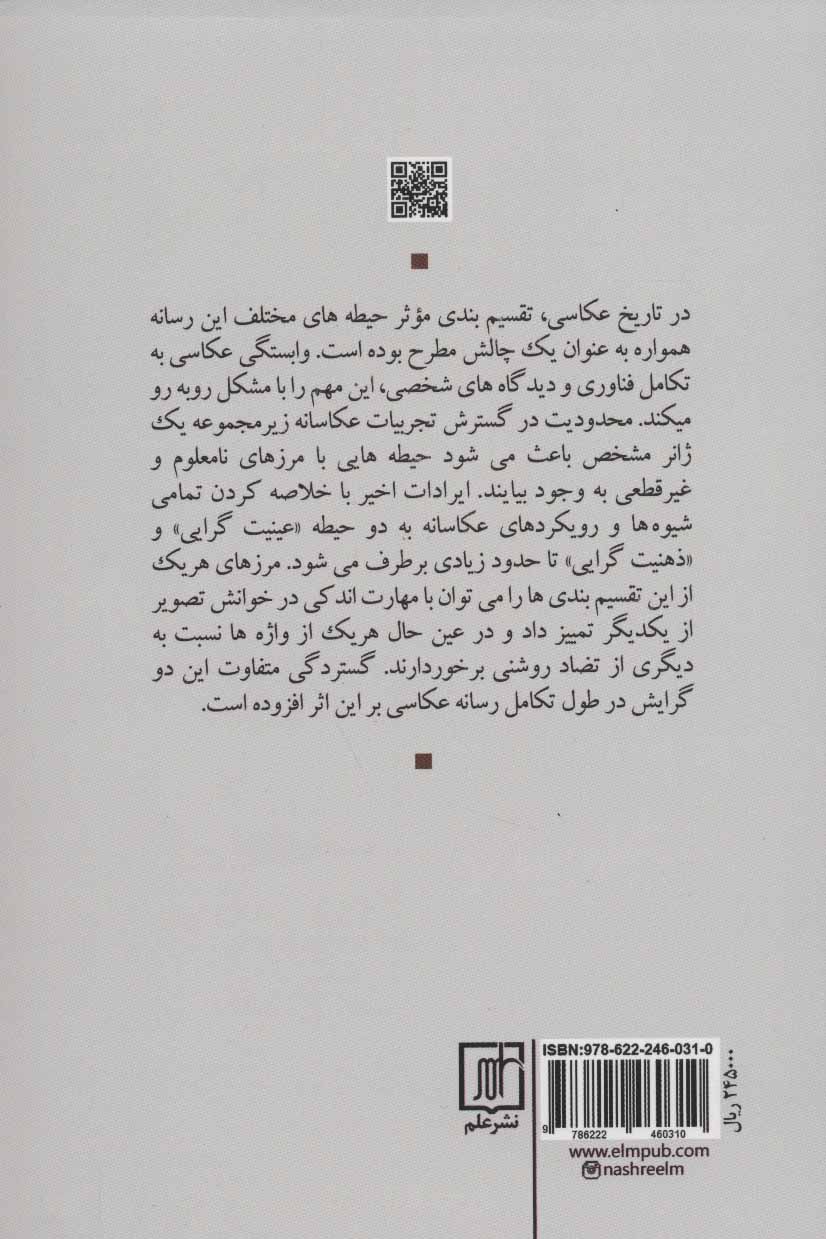 در تاریخ عکاسی، تقسیم بندی مؤثر حیطه های مختلف این رسانه
همواره به عنوان یک چالش مطرح بوده است. وابستگی عکاسی به
تکامل فناوری و دیدگاه های شخصی، این مهم را با مشکل روبه رو
میکند. محدودیت در گسترش تجربیات عکاسانه زیرمجموعه یک
ژانر مشخص باعث می شود حیطه هایی با مرزهای نامعلوم و
غیرقطعی به وجود بیایند. ایرادات اخیر با خلاصه کردن تمامی
شیوه‌ها و رویکردهای عکاسانه به دو حیطه «عینیت گرایی» و
«ذهنیت گرایی» تا حدود زیادی برطرف می شود. مرزهای هریک
از این تقسیم بندی ها را می توان با مهارت اندکی در خوانش تصویر
از یکدیگر تمییز داد و در عین حال هریک از واژه ها نسبت به
دیگری از تضاد روشنی برخوردارند. گستردگی متفاوت این دو
گرایش در طول تکامل رسانه عکاسی بر این اثر افزوده است.
نشر علم
ISBN:978-622-246-031-0
9 786222 460310
۲۴۵۰۰۰ ریال
www.elmpub.com
nashreelm